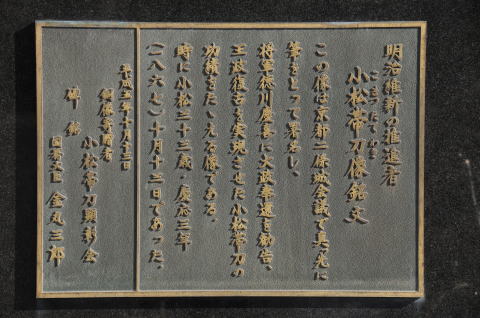 明治維新の推進者
小松帯刀像銘文
こまつたてわき
この像は京都二条城会議で真先に
筆をとって署名し、
将軍徳川慶喜に大政奉還を勧告、
王政復古を実現させた小松帯刀の
功績をたたえる像である。
時に小松三十三歳・慶応三年
(一八六七)十月十三日であった。
平成五年十月十三日
銅像寄贈者
小松帯刀顕彰会
碑銘
金丸三郎